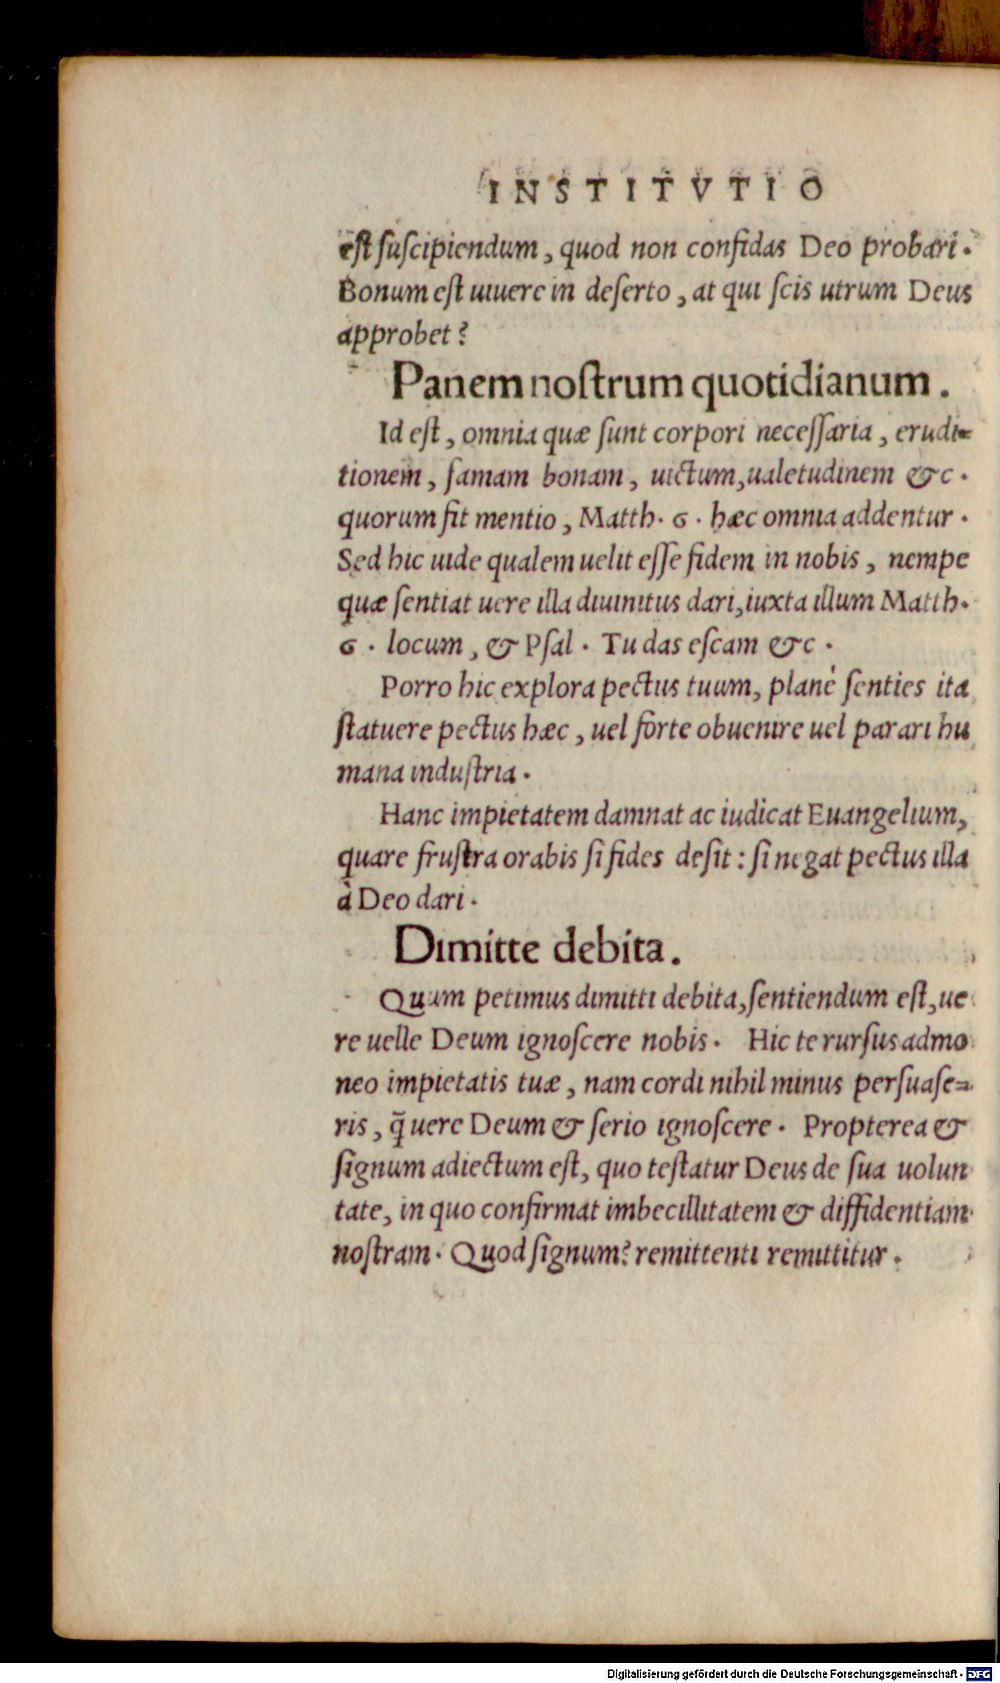 INSTITVTIO
est suscipiendum, quod non confidas Deo probari.
Bonum est uiuere in deserto, at qui scis utrum Deus
approbet?
Panem nostrum quotidianum.
Id est, omnia quæ sunt corpori necessaria, erudi=
tionem, famam bonam, uictum, ualetudinem &c.
quorum fit mentio, Matth. 6. hæc omnia addentur.
Sed hic uide qualem uelit esse fidem in nobis, nempe
quæ sentiat uere illa diuinitus dari, iuxta illum Matth.
6. locum, & Psal. Tu das escam &c.
Porro hic explora pectus tuum, planè senties ita
statuere pectus hæc, uel forte obuenire uel parari hu
mana industria.
Hanc impietatem damnat ac iudicat Euangelium,
quare frustra orabis si fides desit: si negat pectus illa
à Deo dari.
Dimitte debita.
Quum petimus dimitti debita, sentiendum est, ue
re uelle Deum ignoscere nobis. Hic te rursus admo
neo impietatis tuæ, nam cordi nihil minus persuase=
ris, q̃ uere Deum & serio ignoscere. Propterea &
signum adiectum est, quo testatur Deus de sua uolun
tate, in quo confirmat imbecillitatem & diffidentiam
nostram. Quod signum? remittenti remittitur.
Digitalisierung gefördert durch die Deutsche Forschungsgemeinschaft - DFG